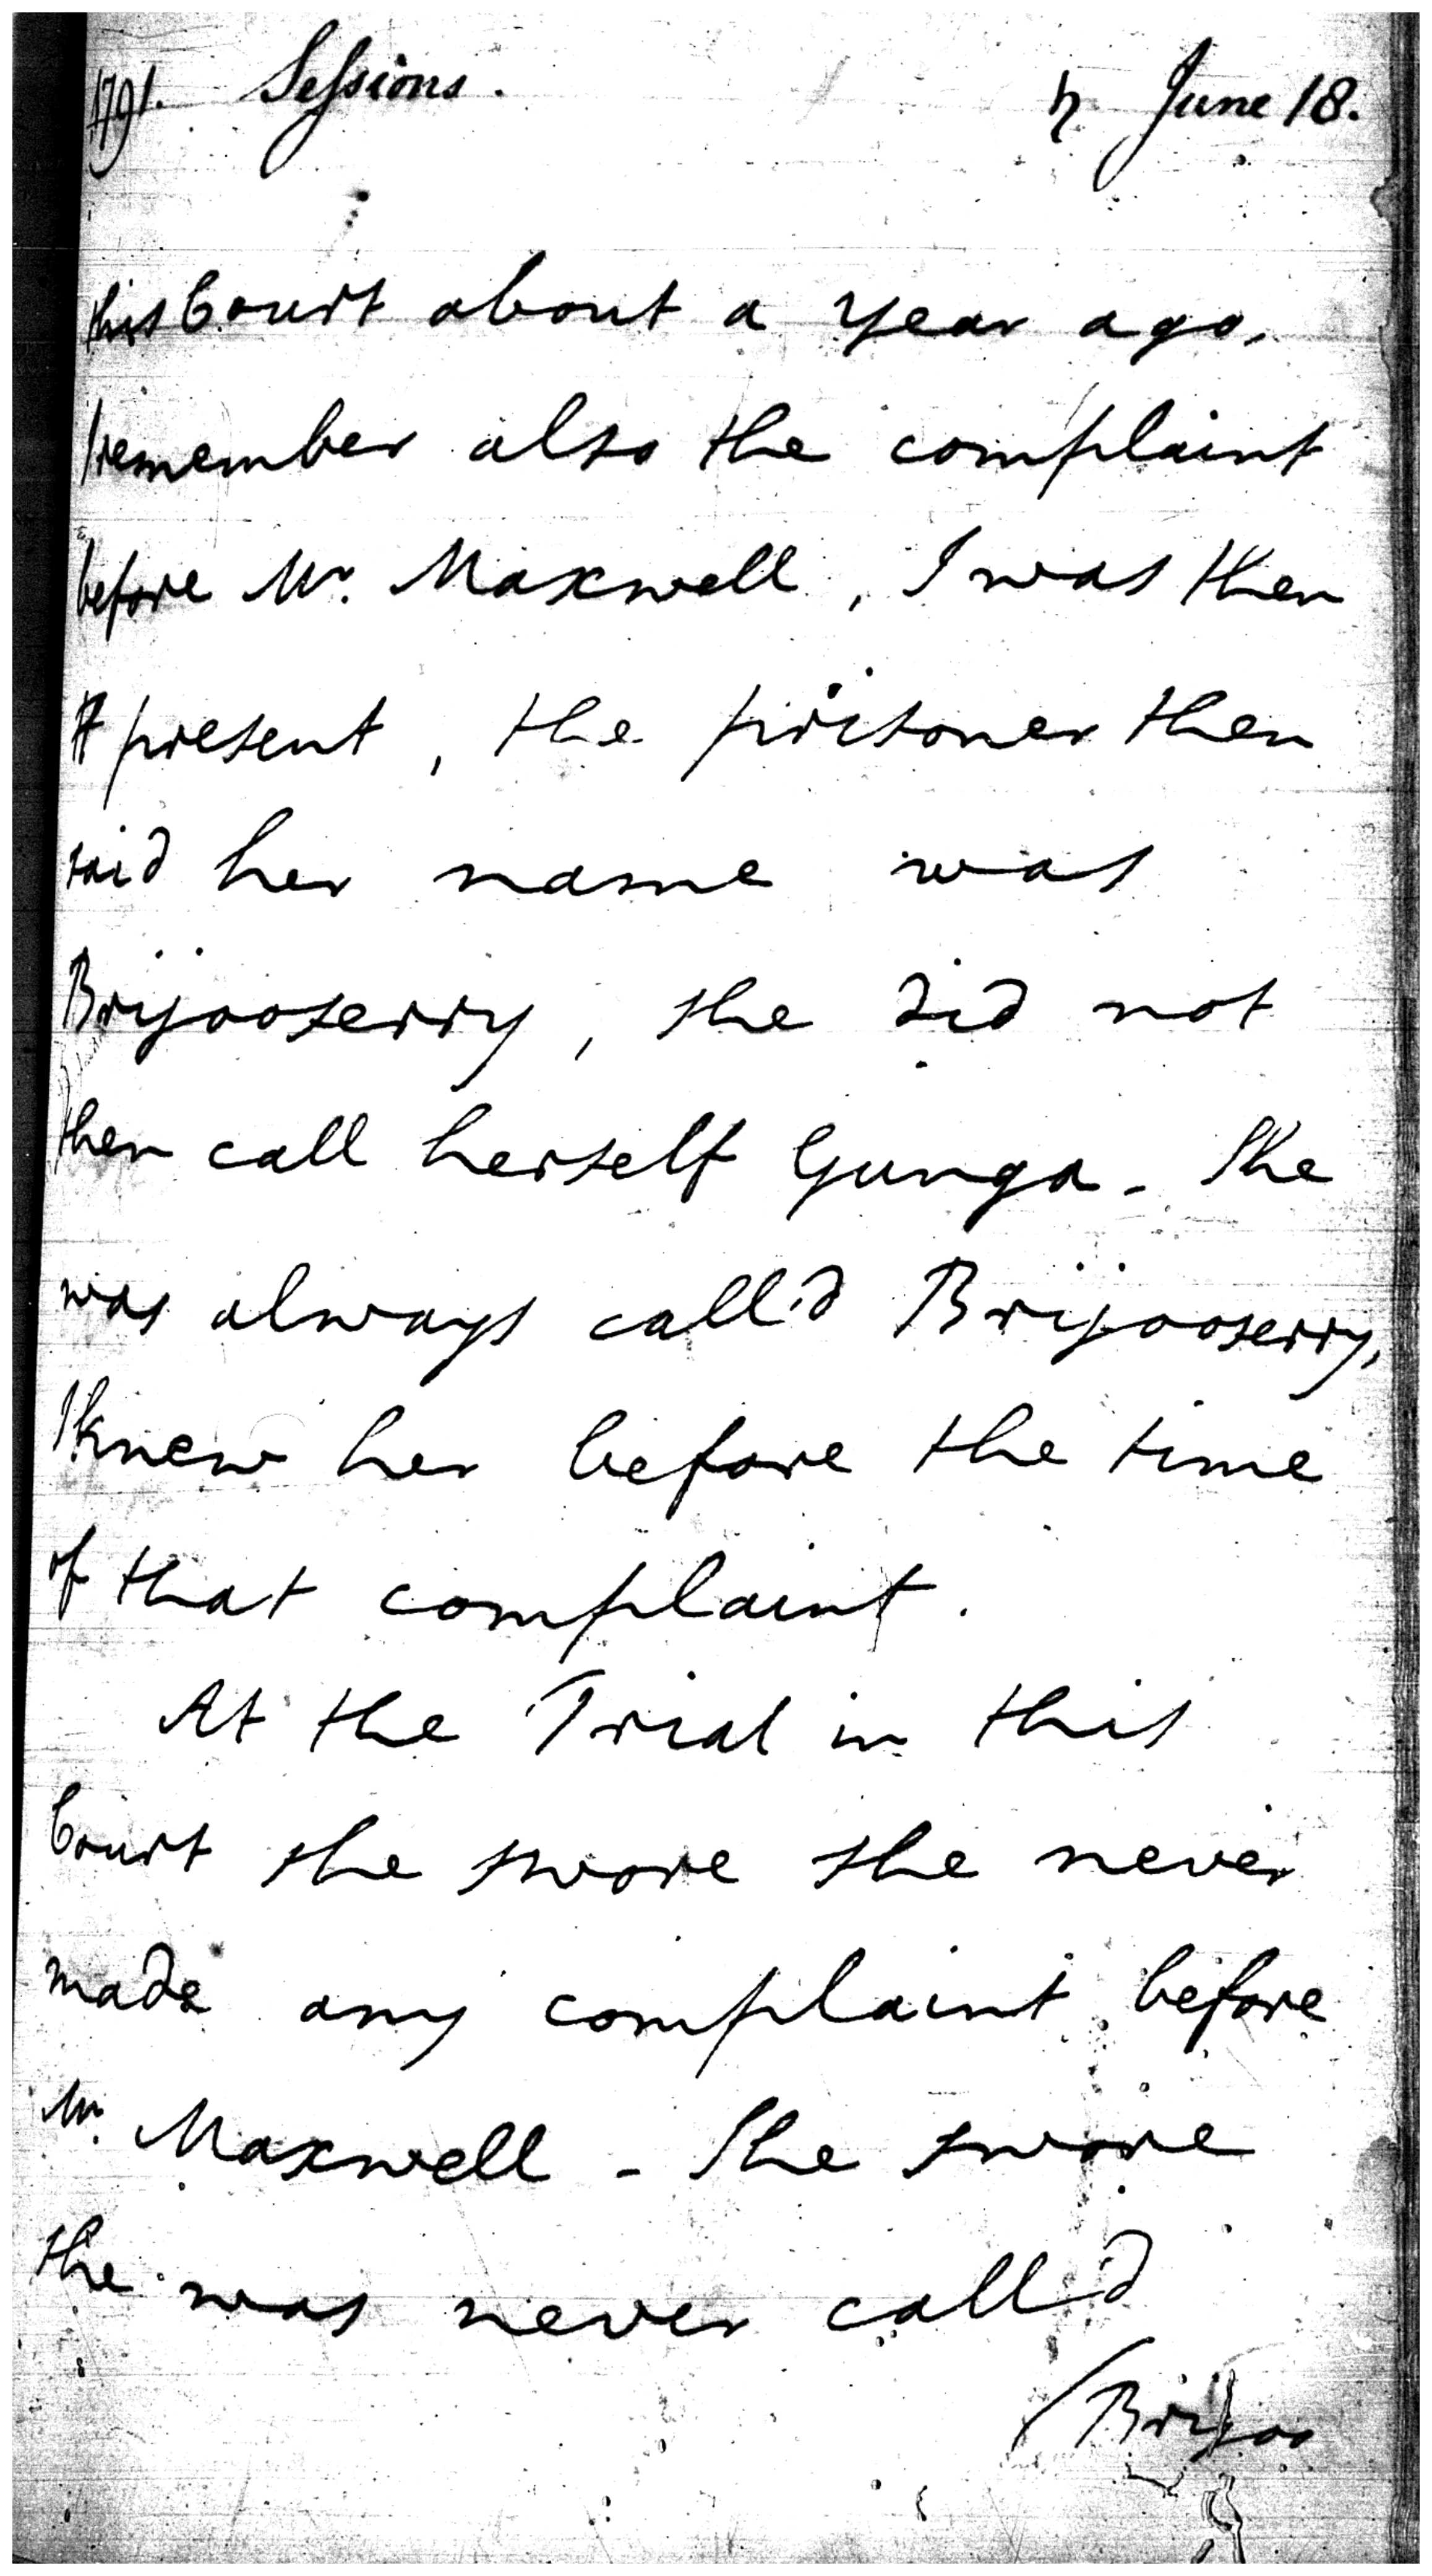 1791. Sessions. ♄ June 18.
this Court about a year ago,
I remember also the complaint
before Mr. Maxwell, I was then
present, the prisoner then
said her name was
Brijooserry, she did not
then call herself Gunga - She
was always call'd Brijooserry,
I knew her before the time
of that complaint.
At the Trial in this
Court she swore she never
made any complaint before
Mr. Maxwell - She swore
she was never call'd
(Brijoo